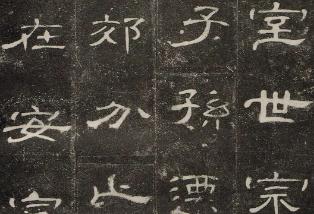 室世宗
子孫遷
郊分止
在安定